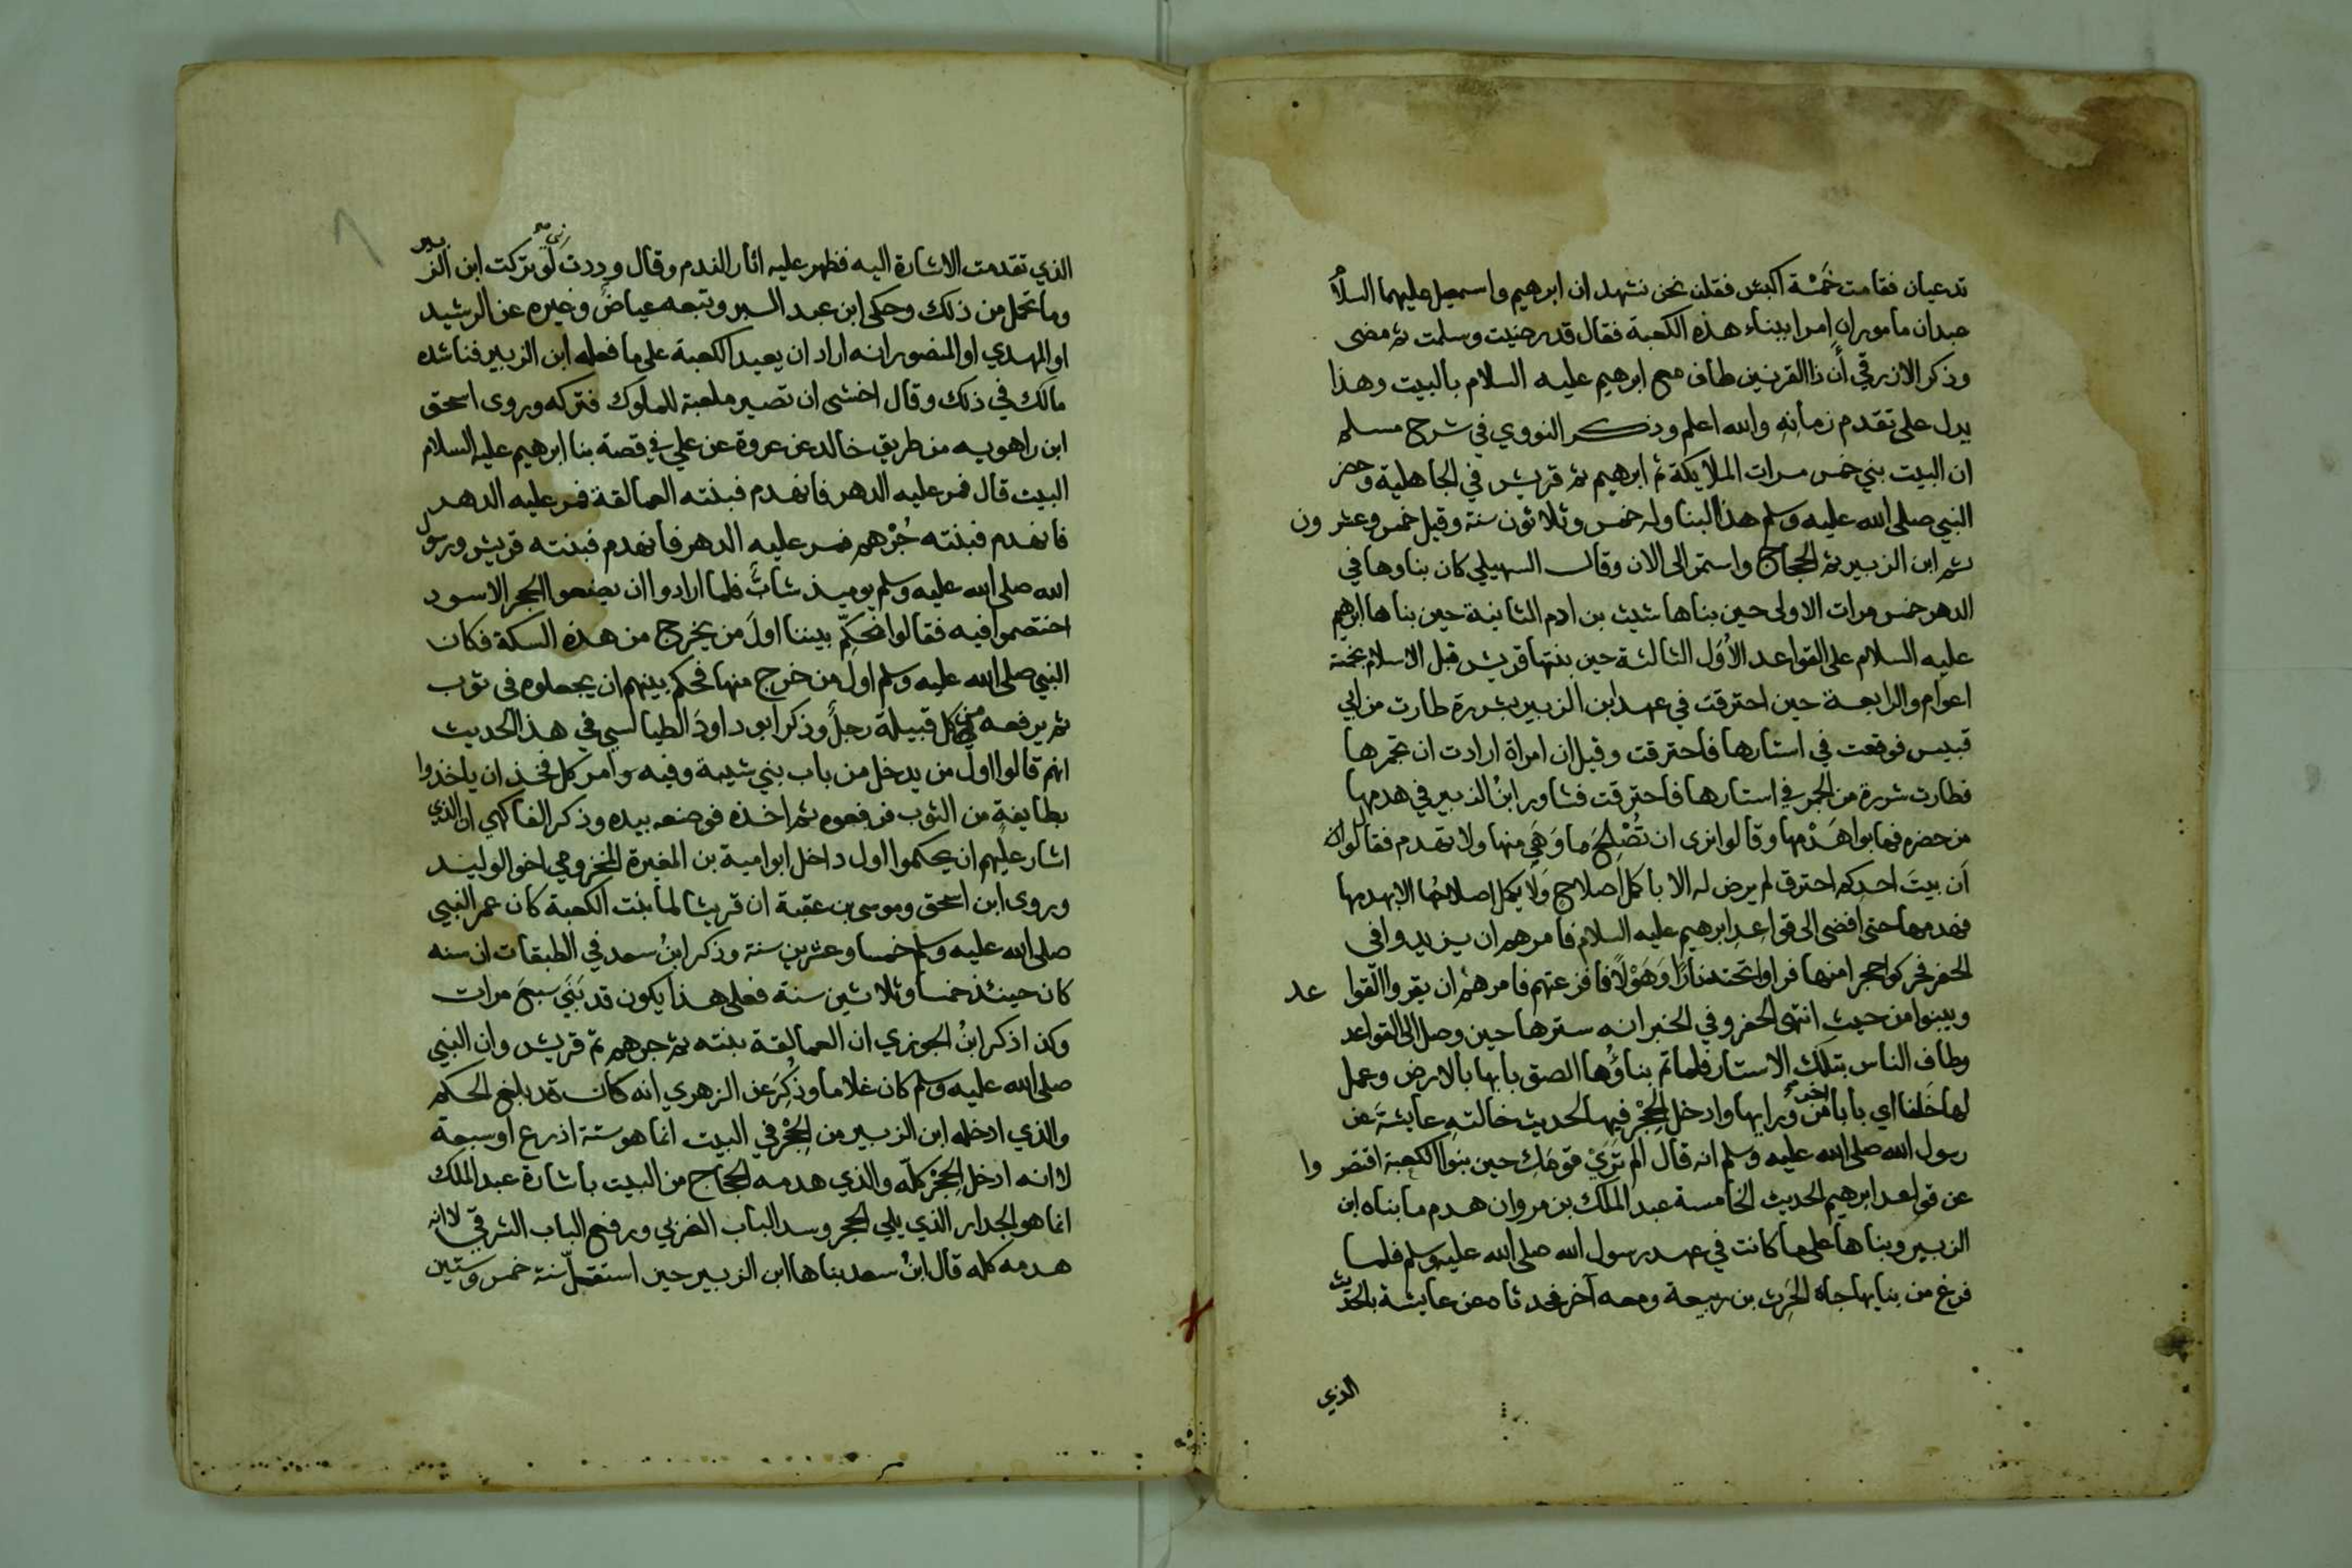 تدعيان فقامت خَمْسَة اكبش فقلن نحن نشهد ان ابرهيم واسمعيل عليهما السلام
عبدان ماموران امرا ببناء هذه الكعبة فقال قد رضيت وسلمت ثم مضى
وذكر الازرقي أن ذا القرنين طاف مع ابرهيم عليه السلام بالبيت وهذا
يدل على تقدم زمانه والله اعلم وذكر النووي في شرح مسلم
ان البيت بني خمس مرات الملايكة ثم ابرهيم ثم قريش في الجاهلية وحضر
النبي صلى الله عليه وسلم هذا البنا وله خمس وثلاثون سنة وقيل خمس وعشرون
ثم ابن الزبير ثم الحجاج واستمر الى الان وقال السهيلي كان بناوها في
الدهر خمس مرات الاولى حين بناها شيث بن ادم الثانية حين بناها ابرهيم
عليه السلام على القواعد الأُوَل الثالثة حين بنتها قريش قبل الاسلام بخمسة
اعوام والرابعة حين احترقت في عهد ابن الزبير بشررة طارت من ابي
قبيس فوقعت في استارها فاحترقت وقيل ان امراة ارادت ان تجمرها
فطارت شررة من الجمر في استارها فاحترقت فشاور ابنُ الزبير في هدمها
من حضره فهابوا هَدْمها وقالوا نرى ان تُصْلِحَ ما وَهَى منها ولا تهدم فقال لو ان
أن بيتَ احدكم احترق لم يرض له الا باكمل اصلاحٍ وَلَا يكمل اصلاحُها الا بهدمها
فهدمها حتى افضى الى قواعِدِ ابرهيم عليه السلام فامرهم ان يزيدوا في
الحفر فحركوا حجرا منها فراوا تحته نارًا وَهَوْلًا فافزعتهم فامرهم ان يقروا القواعد
ويبنوا من حيث انتهى الحفر وفي الخبر انه سترها حين وصل الى القواعد
وطاف الناس بتلك الاستار فلما تم بناؤُها الصق بابها بالارض وعمل
لها خَلفا اي بابا اخر من ورايها وادخل الحِجْر فيها لحديث خالته عايشةَ عن
رسول الله صلى الله عليه وسلم انه قال الم تَرَيْ قومَكِ حين بنوا الكعبة اقتصروا
عن قواعد ابرهيم الحديث الخامسة عبد الملك بن مروان هدم ما بناه ابن
الزبير وبناها على ما كانت في عهد رسول الله صلى الله عليه وسلم فلما
فرغ من بنايها جاه الحَرِث بن ربيعة ومعه آخر فحدثاه عن عايشة بالحديث
الذي
الذي تقدمت الاشارة اليه فظهر عليه اثار الندم وقال وددت لو تركت ابن الزبير
وما تحمل من ذلك وحكى ابن عبد البر وتبعه عياض وغيره عن الرشيد
او المهدي او المنصور انه اراد ان يعيد الكعبة على ما فعله ابن الزبير فناشده
مالك في ذلك وقال اخشى ان تصير ملعبة للملوك فتركه وروى اسحق
ابن راهويه من طريق خالد عن عروة عن علي في قصة بنا ابرهيم عليه السلام
البيت قال فمر عليه الدهر فانهدم فبنته العمالقة فمر عليه الدهر
فانهدم فبنته جُرْهم فمر عليه الدهر فانهدم فبنته قريش ورسول
الله صلى الله عليه وسلم يوميذ شابٌ فلما ارادوا ان يضعوا الحجر الاسود
اختصموا فيه فقالوا نُحكِّم بيننا اولَ من يخرج من هذه السكة فكان
النبي صلى الله عليه وسلم اول من خرج منها فحكم بينهم ان يجعلوه في ثوب
ثم يرفعه من كل قبيلة رجلٌ وذكر ابو داودَ الطيالسي في هذا الحديث
انهم قالوا اول من يدخل من باب بني شيبة وفيه وامر كل فخذ ان ياخذوا
بطايفة من الثوب فرفعوه ثم اخذه فوضعه بيده وذكر الفاكهي ان الذي
اشار عليهم ان يحكموا اول داخل ابو امية بن المغيرة المخزومي اخو الوليد
وروى ابن اسحق وموسى بن عقبة ان قريشا لما بنت الكعبة كان عمر النبي
صلى الله عليه وسلم خمسا وعشرين سنة وذكر ابنُ سعد في الطبقات ان سنه
كان حينئذ خمسا وثلاثين سنة فعلى هذا يكون قد بَنَي سبعَ مرات
وكذا ذكر ابنُ الجوزي ان العمالقة بنته ثم جرهم ثم قريش وان النبي
صلى الله عليه وسلم كان غلاما وذُكِرَ عن الزهري انه كان قد بلغ الحكم
والذي ادخله ابن الزبير من الحِجْر في البيت انما هو ستة اذرع او سبعة
لا انه ادخل الحِجْر كلّه والذي هدمه الحجاج من البيت باشارة عبد الملك
انما هو الجدار الذي يلي الحجر وسد الباب الغربي ورفع الباب الشرقي لا انه
هدمه كله قال ابنُ سعد بناها ابن الزبير حين استقلّ سنة خمس وستين